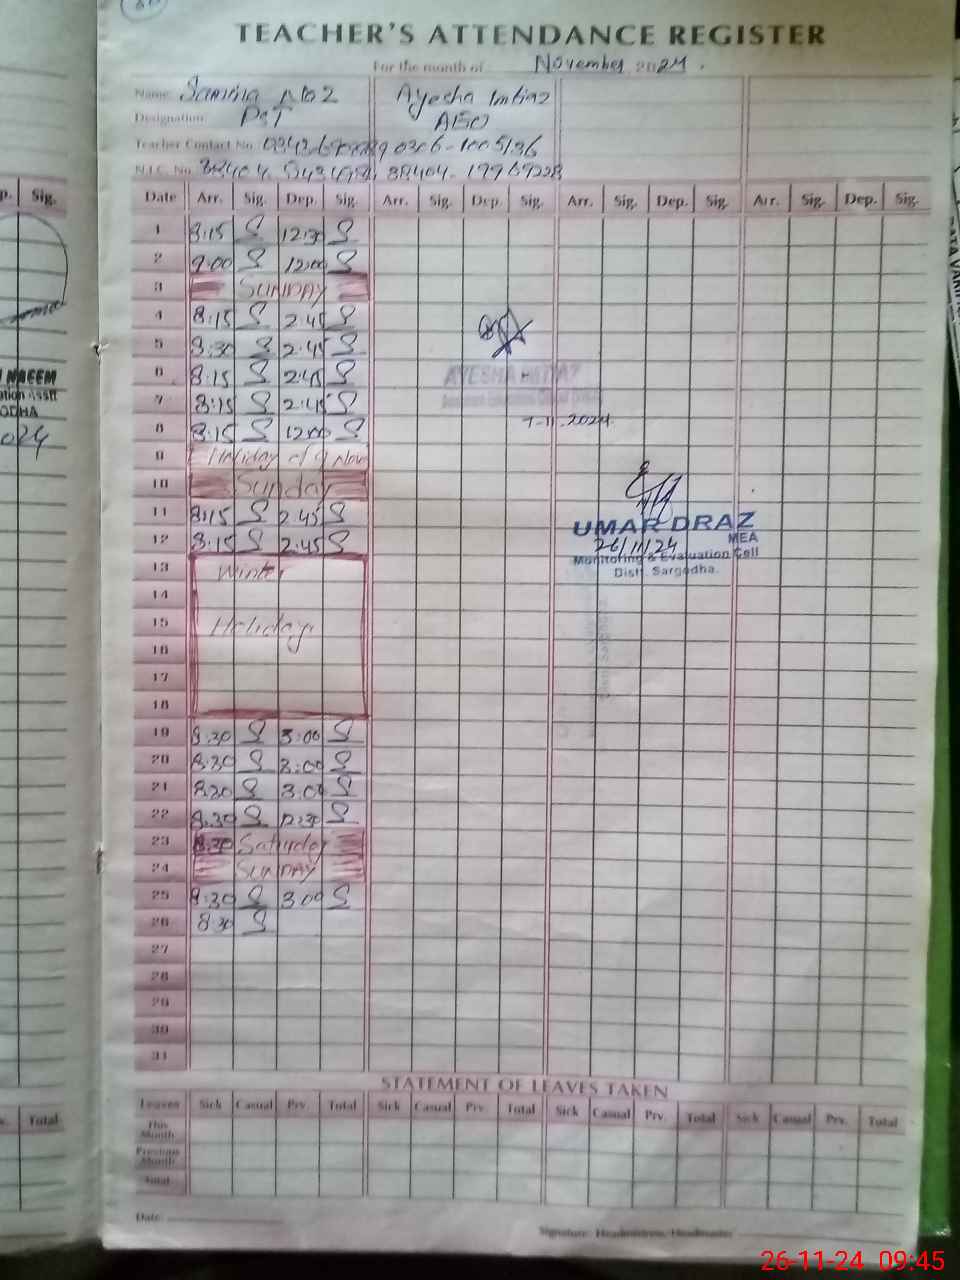 TEACHER'S ATTENDANCE REGISTER
For the month of November 2024.
Name: Samina No 2 Ayesha Imtiaz
Designation: PST AEO
Teacher Contact No. 0306-1005136
N.I.C. No. 38404-
Date Arr. Sig. Dep. Sig. Arr. Sig. Dep. Sig. Arr. Sig. Dep. Sig. Arr. Sig. Dep. Sig.
p. Sig.
1 8:15 S 12:30 S
2 9:00 S 12:00 S
3 SUNDAY
4 8:15 S 2:45 S
5 8:30 S 2:45 S
6 8:15 S 2:45 S
AYESHA IMTIAZ
NAEEM
7 8:15 S 2:45 S
7-11-2024
8 8:15 S 12:00 S
9 Holiday of 9 Nov
10 Sunday
11 8:15 S 2:45 S
UMAR DRAZ
12 8:15 S 2:45 S
MEA
26/11/24
Monitoring & Evaluation Cell
Distt. Sargodha.
13 Winter
14
15 Holiday
16
17
18
19 8:30 S 3:00 S
20 8:30 S 3:00 S
21 8:30 S 3:00 S
22 8:30 S 12:30 S
23 8:30 Saturday
24 SUNDAY
25 8:30 S 3:00 S
26 8:30 S
27
28
29
30
31
STATEMENT OF LEAVES TAKEN
Leaves Sick Casual Prv. Total Sick Casual Prv. Total Sick Casual Prv. Total Sick Casual Prv. Total
This Month
Previous Month
Total
Total
Date:
Signature: Headmistress/Headmaster
26-11-24 09:45